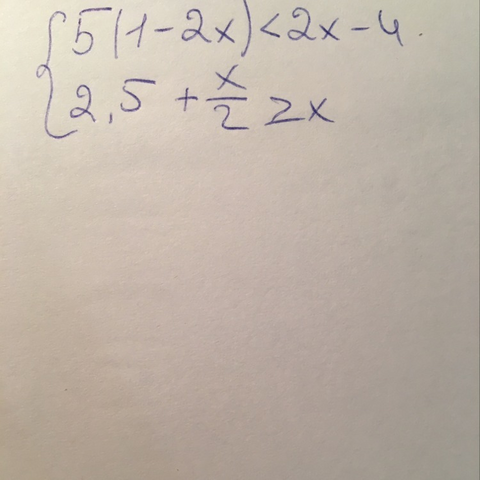 { 5(1-2x)<2x-4.
2,5 + x/2 ≥ x